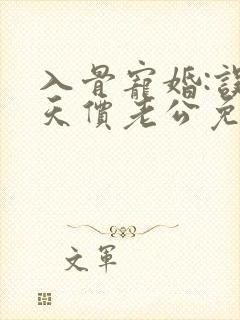 入骨寵婚:誤
天價老公免
文軍